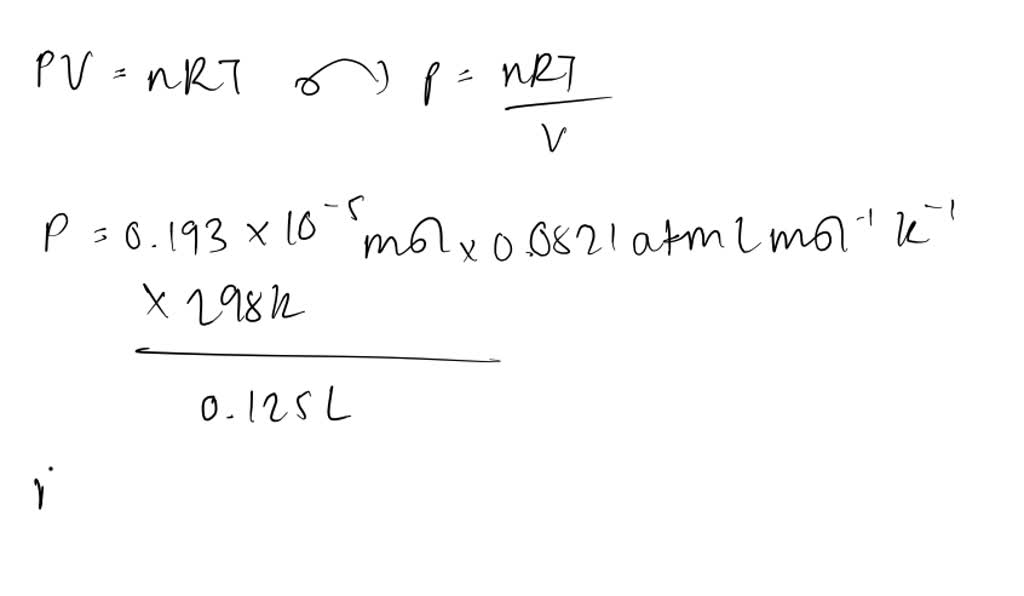 PV = nRT → P = nRT
V
P = 0.193 × 10⁻⁵ mol × 0.0821 atm L mol⁻¹ K⁻¹
× 298K
0.125 L